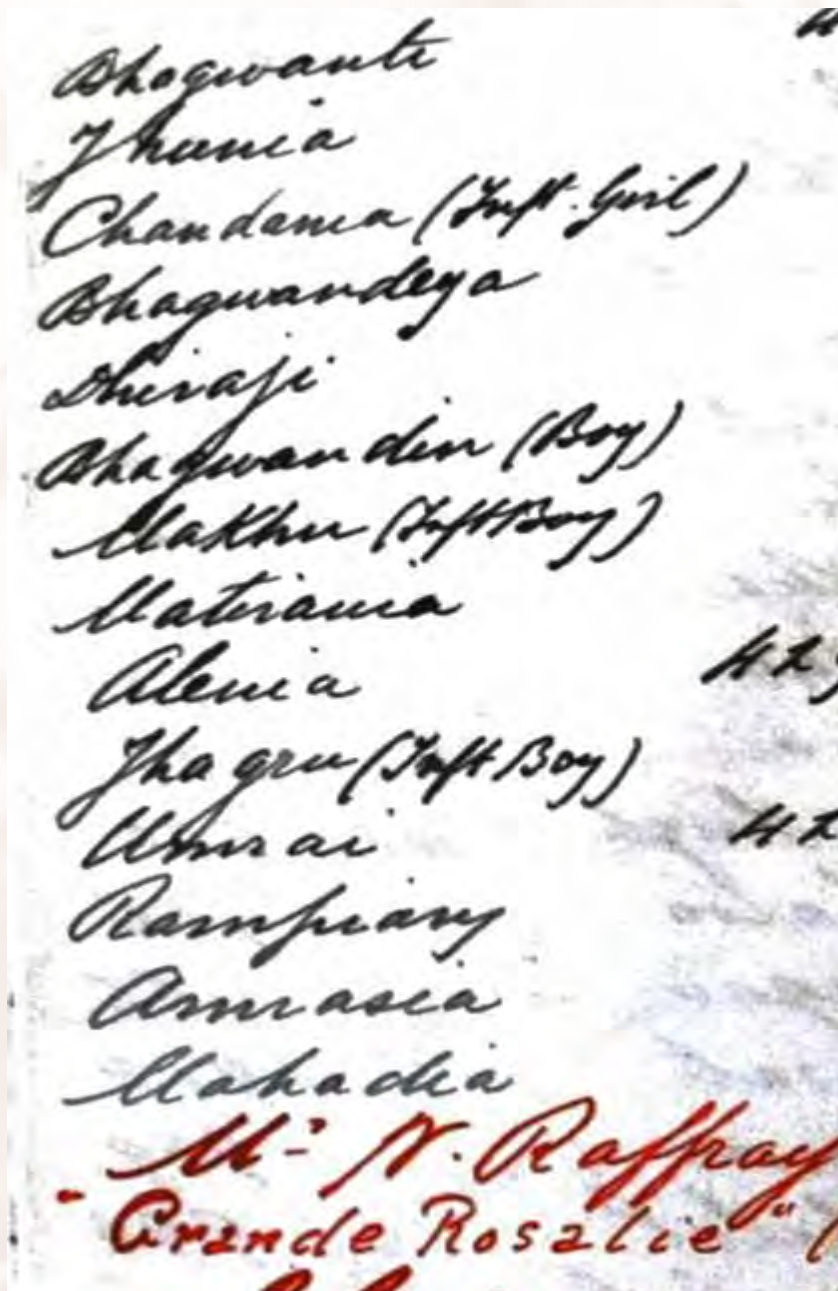 Bhagwanti
Jhunia
Chandania (Inft. Girl)
Bhagwandeya
Dhiraji
Bhagwandin (Boy)
Makhu (Inft Boy)
Matirania
Alenia 42
Jhagru (Inft Boy)
Umrai 42
Rampiary
Amrasia
Mahadia
Mr N. Raffray
"Grande Rosalie" (